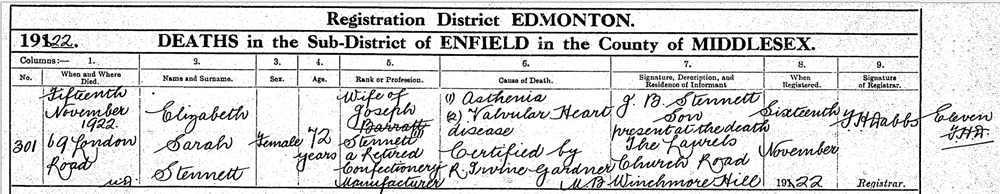 Registration District EDMONTON.
1922. DEATHS in the Sub-District of ENFIELD in the County of MIDDLESEX.
Columns:— 1. 2. 3. 4. 5. 6. 7. 8. 9.
No. When and Where Died. Name and Surname. Sex. Age. Rank or Profession. Cause of Death. Signature, Description, and Residence of Informant When Registered. Signature of Registrar.
301
Fifteenth
November
1922
69 London
Road
U.D.
Elizabeth
Sarah
Stennett
Female
72
years
Wife of
Joseph
Barratt
Stennett
a Retired
Confectionery
Manufacturer
(1) Asthenia
(2) Valvular Heart
disease
Certified by
R Irvine Gardner
M.B.
J. B. Stennett
Son
present at the death
The Laurels
Church Road
Winchmore Hill
Sixteenth
November
1922
Registrar.
Eleven